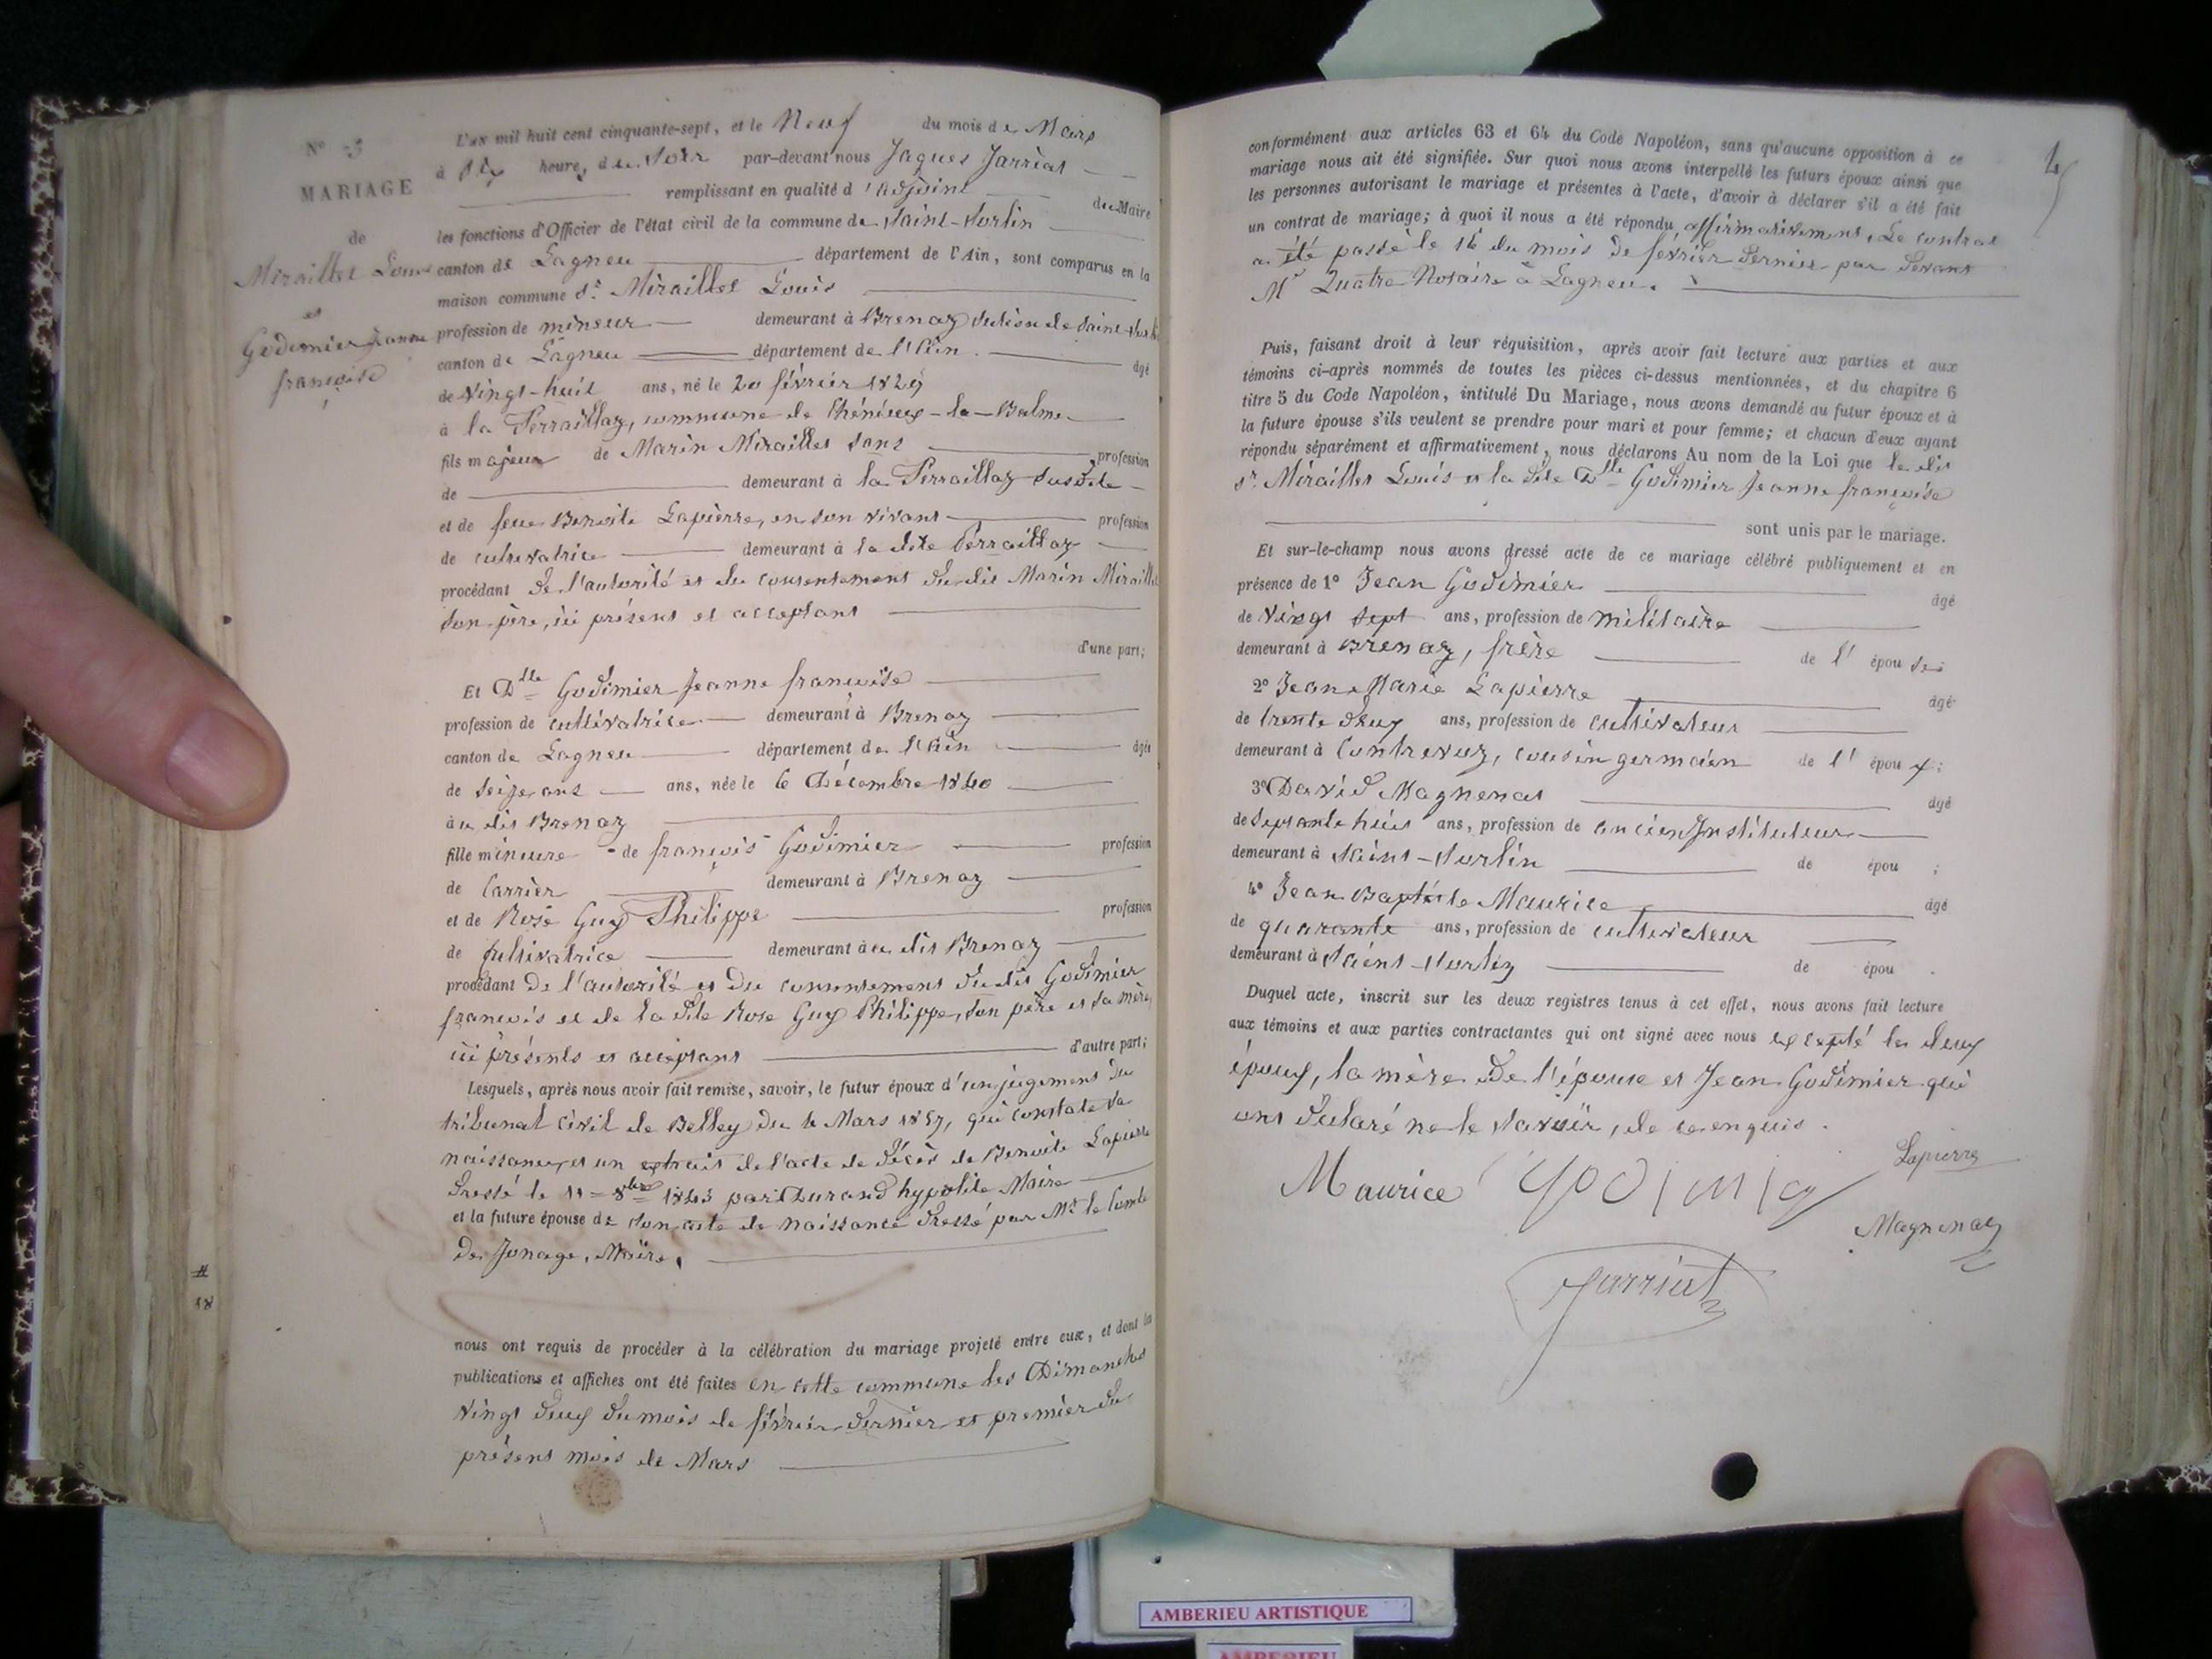 N° 3
MARIAGE
de
Miraillet Louis
et
Godimier Jeanne
françoise
L'an mil huit cent cinquante-sept, et le Neuf du mois de Mars
à six heures du soir par-devant nous Jaques Jarriat
remplissant en qualité d'adjoint du Maire
les fonctions d'Officier de l'état civil de la commune de Saint-Sorlin
canton de Lagneu département de l'Ain, sont comparus en la
maison commune Sr. Miraillet Louis
profession de mineur demeurant à Brenaz
canton de Lagneu département de l'Ain âgé
de Vingt-huit ans, né le 20 février 1829
à la Perraillaz, commune de Chénieux-la-Balme
fils majeur de Marin Miraillet sans profession
de demeurant à la Perraillaz susdite
et de feue Benoite Lapierre, en son vivant profession
de cultivatrice demeurant à la dite Perraillaz
procédant de l'autorité et du consentement du dit Marin Miraillet
son père, ici présent et acceptant
d'une part;
Et Dlle Godimier Jeanne françoise
profession de cultivatrice demeurant à Brenaz
canton de Lagneu département de l'Ain âgée
de seize ans ans, née le 6 Décembre 1840
à u dit Brenaz
fille mineure de françois Godimier profession
de Carrier demeurant à Brenaz
et de Rose Guy Philippe profession
de Cultivatrice demeurant à u dit Brenaz
procédant de l'autorité et du consentement du dit Godimier
françois et de la dite Rose Guy Philippe, son père et sa mère,
ici présents et acceptant d'autre part;
Lesquels, après nous avoir fait remise, savoir, le futur époux d'un jugement du
tribunal Civil de Belley du 4 Mars 1857, qui constate sa
naissance, et un extrait de l'acte de décès de Benoite Lapierre
dressé le 11 = 8bre 1843 par Durand hypolite Maire
et la future épouse de son acte de naissance dressé par Mr le Comte
de Jonage, Maire.
nous ont requis de procéder à la célébration du mariage projeté entre eux, et dont les
publications et affiches ont été faites en cette commune les Dimanches
Vingt deux du mois de février dernier et premier du
présent mois de Mars
4
conformément aux articles 63 et 64 du Code Napoléon, sans qu'aucune opposition à ce
mariage nous ait été signifiée. Sur quoi nous avons interpellé les futurs époux ainsi que
les personnes autorisant le mariage et présentes à l'acte, d'avoir à déclarer s'il a été fait
un contrat de mariage; à quoi il nous a été répondu affirmativement, Le contrat
a été passé le 16 du mois de février dernier par devant
Mr Quatre Notaire à Lagneu.
Puis, faisant droit à leur réquisition, après avoir fait lecture aux parties et aux
témoins ci-après nommés de toutes les pièces ci-dessus mentionnées, et du chapitre 6
titre 5 du Code Napoléon, intitulé Du Mariage, nous avons demandé au futur époux et à
la future épouse s'ils veulent se prendre pour mari et pour femme; et chacun d'eux ayant
répondu séparément et affirmativement, nous déclarons Au nom de la Loi que le dit
sr. Miraillet Louis et la dite Dlle Godimier Jeanne françoise
sont unis par le mariage.
Et sur-le-champ nous avons dressé acte de ce mariage célébré publiquement et en
présence de 1° Jean Godimier âgé
de Vingt sept ans, profession de militaire
demeurant à Brenaz, frère de l' épou se;
2° Jean Marie Lapierre âgé
de trente deux ans, profession de cultivateur
demeurant à Contrevoz, cousin germain de l' épou x;
3° David Magnenat âgé
de septante huit ans, profession de ancien Instituteur
demeurant à Saint-Sorlin de épou ;
4° Jean Baptiste Maurice âgé
de quarante ans, profession de cultivateur
demeurant à Saint-Sorlin de épou .
Duquel acte, inscrit sur les deux registres tenus à cet effet, nous avons fait lecture
aux témoins et aux parties contractantes qui ont signé avec nous excepté les deux
époux, la mère de l'épouse et Jean Godimier qui
ont déclaré ne le savoir, de ce enquis.
Maurice Godimier Lapierre
Magnenat
Jarriat
AMBERIEU ARTISTIQUE
AMBERIEU